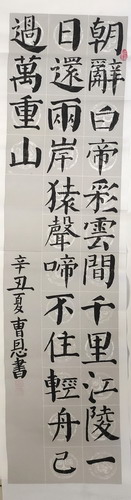 朝辭白帝彩雲間千里江陵一
日還兩岸猿聲啼不住輕舟已
過萬重山
辛丑夏曹恩書